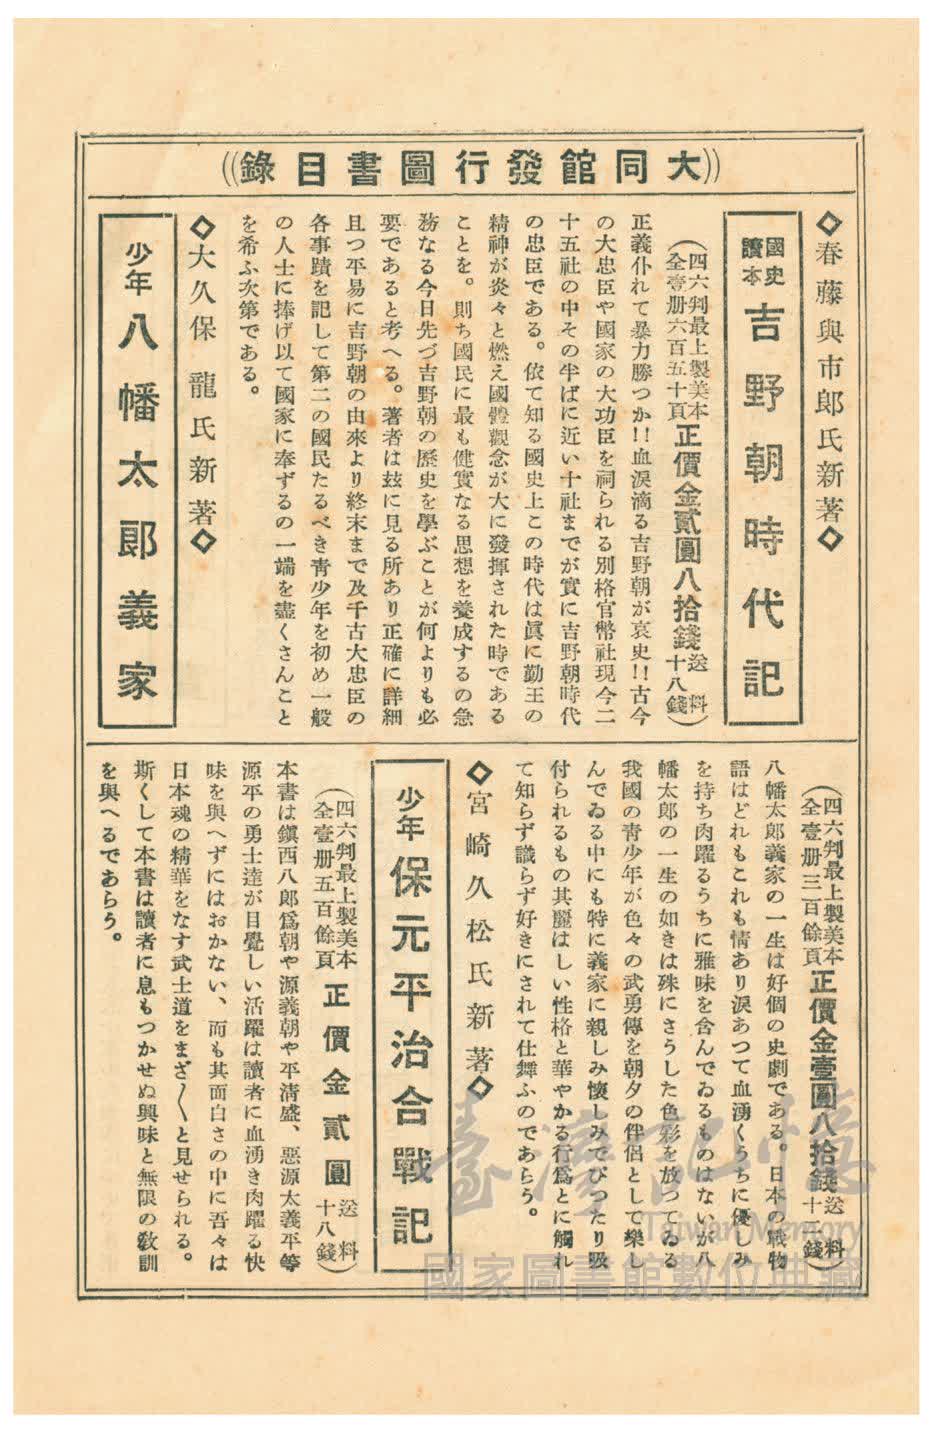 ((大同館發行圖書目錄))
◇春藤與市郎氏新著◇
國史讀本 吉野朝時代記
(四六判最上製美本 全壹册六百五十頁 正價金貳圓八拾錢 送料十八錢)
正義仆れて暴力勝つか!!血淚滴る吉野朝が哀史!!古今
の大忠臣や國家の大功臣を祠られる別格官幣社現今二
十五社の中その半ばに近い十社までが實に吉野朝時代
の忠臣である。依て知る國史上この時代は眞に勤王の
精神が炎々と燃え國體觀念が大に發揮された時である
ことを。則ち國民に最も健實なる思想を養成するの急
務なる今日先づ吉野朝の歷史を學ぶことが何よりも必
要であると考へる。著者は玆に見る所あり正確に詳細
且つ平易に吉野朝の由來より終末まで及千古大忠臣の
各事蹟を記して第二の國民たるべき靑少年を初め一般
の人士に捧げ以て國家に奉ずるの一端を盡くさんこと
を希ふ次第である。
◇大久保龍氏新著◇
少年 八幡太郎義家
(四六判最上製美本 全壹册三百餘頁 正價金壹圓八拾錢 送料十二錢)
八幡太郎義家の一生は好個の史劇である。日本の戰物
語はどれもこれも情あり淚あつて血湧くうちに優しみ
を持ち肉躍るうちに雅味を含んでゐるものはないが八
幡太郎の一生の如きは殊にさうした色彩を放つてゐる
我國の靑少年が色々の武勇傳を朝夕の伴侶として樂し
んでゐる中にも特に義家に親しみ懷しみてぴつたり吸
付られるもの其麗はしい性格と華やかる行爲とに觸れ
て知らず識らず好きにされて仕舞ふのであらう。
◇宮崎久松氏新著◇
少年 保元平治合戰記
(四六判最上製美本 全壹册五百餘頁 正價金貳圓 送料十八錢)
本書は鎭西八郎爲朝や源義朝や平淸盛、惡源太義平等
源平の勇士達が目覺しい活躍は讀者に血湧き肉躍る快
味を與へずにはおかない、而も其面白さの中に吾々は
日本魂の精華をなす武士道をまざ〱と見せられる。
斯くして本書は讀者に息もつかせぬ興味と無限の敎訓
を與へるであらう。
臺灣記憶
Taiwan Memory
國家圖書館數位典藏